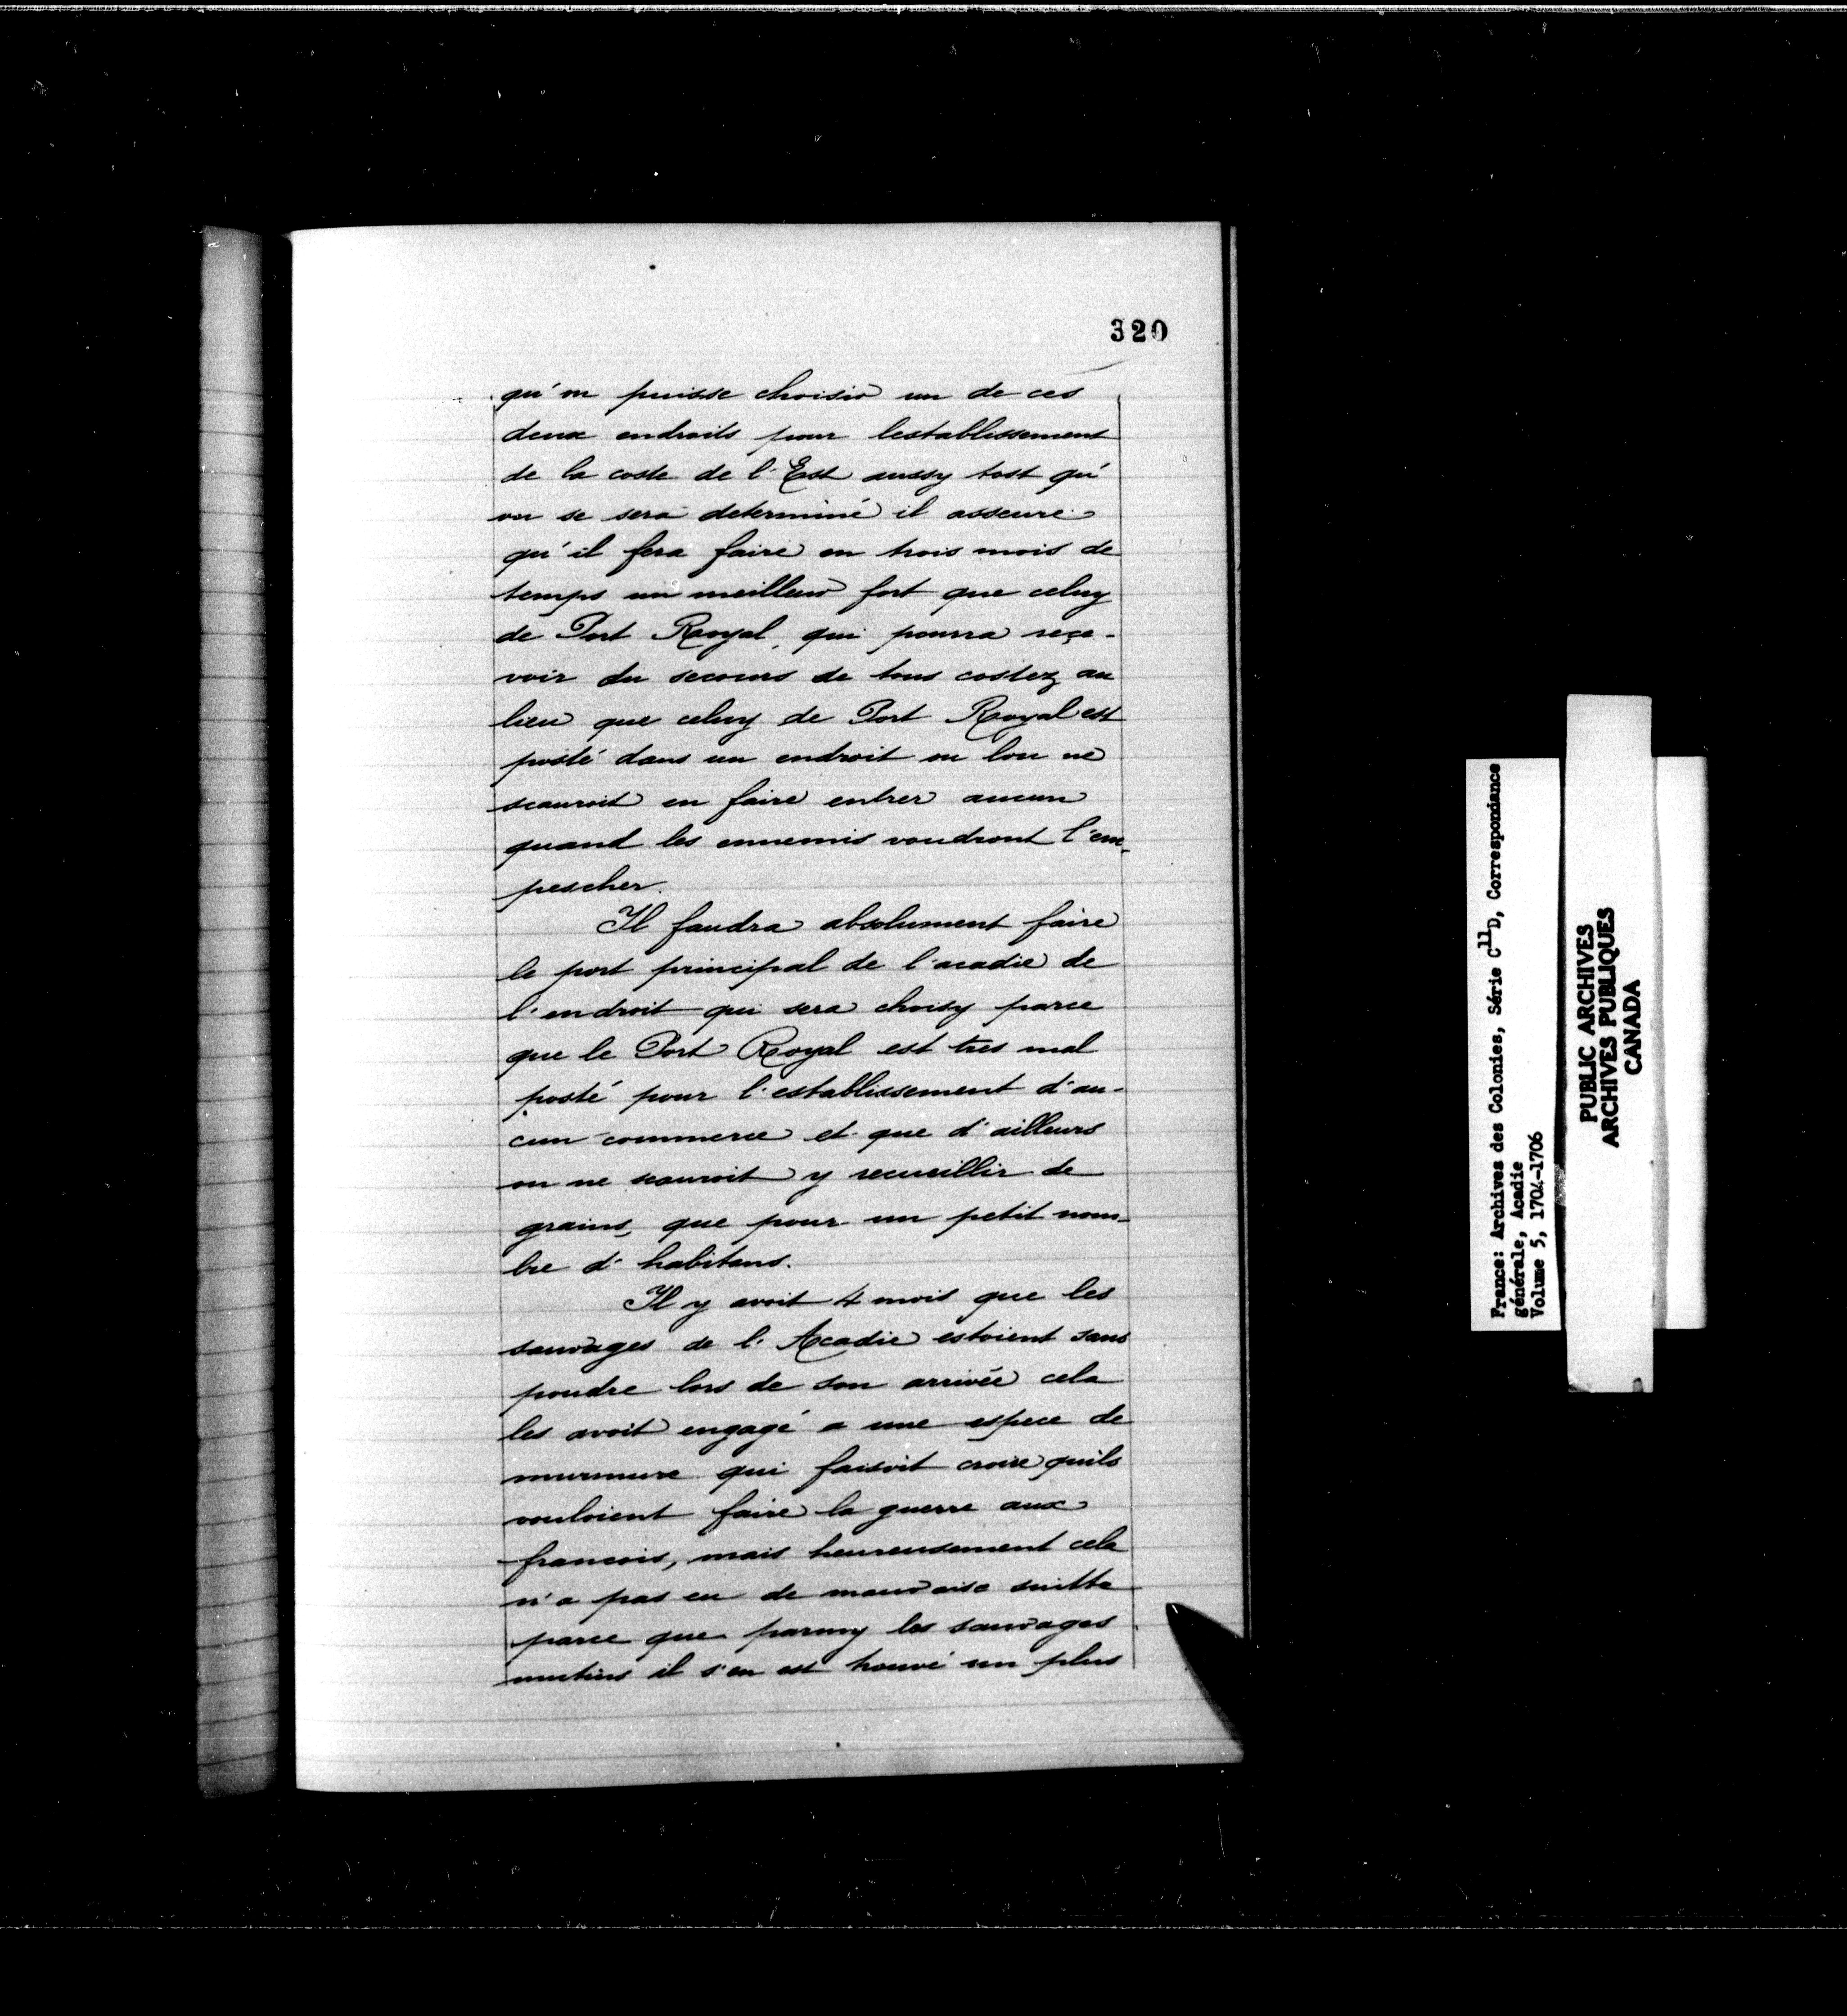 320
qu'on puisse choisir un de ces
deux endroits pour lestablissement
de la coste de l'Est aussy tost qu'
on se sera determiné il asseure
qu'il fera faire en trois mois de
temps un meilleur fort que celuy
de Port Royal, qui pourra reçe-
voir du secours de tous costez au
lieu que celuy de Port Royal est
posté dans un endroit ou lon ne
scauroit en faire entrer aucun
quand les ennemis voudront l'em-
pescher.
Il faudra absolument faire
le port principal de l'acadie de
l'endroit qui sera choisy parce
que le Port Royal est tres mal
posté pour l'establissement d'au-
cun commerce et que d'ailleurs
on ne scauroit y recueillir de
grains, que pour un petit nom-
bre d'habitans.
Il y avoit 4 mois que les
sauvages de l'Acadie estoient sans
poudre lors de son arrivée cela
les avoit engagé a une espece de
murmure qui faisoit croire quils
vouloient faire la guerre aux
francois, mais heureusement cela
n'a pas eu de mauvaise suitte
parce que parmy les sauvages
mutins il s'en est trouvé un plus
France: Archives des Colonies, Série C11D, Correspondance
générale, Acadie
Volume 5, 1704-1706
PUBLIC ARCHIVES
ARCHIVES PUBLIQUES
CANADA